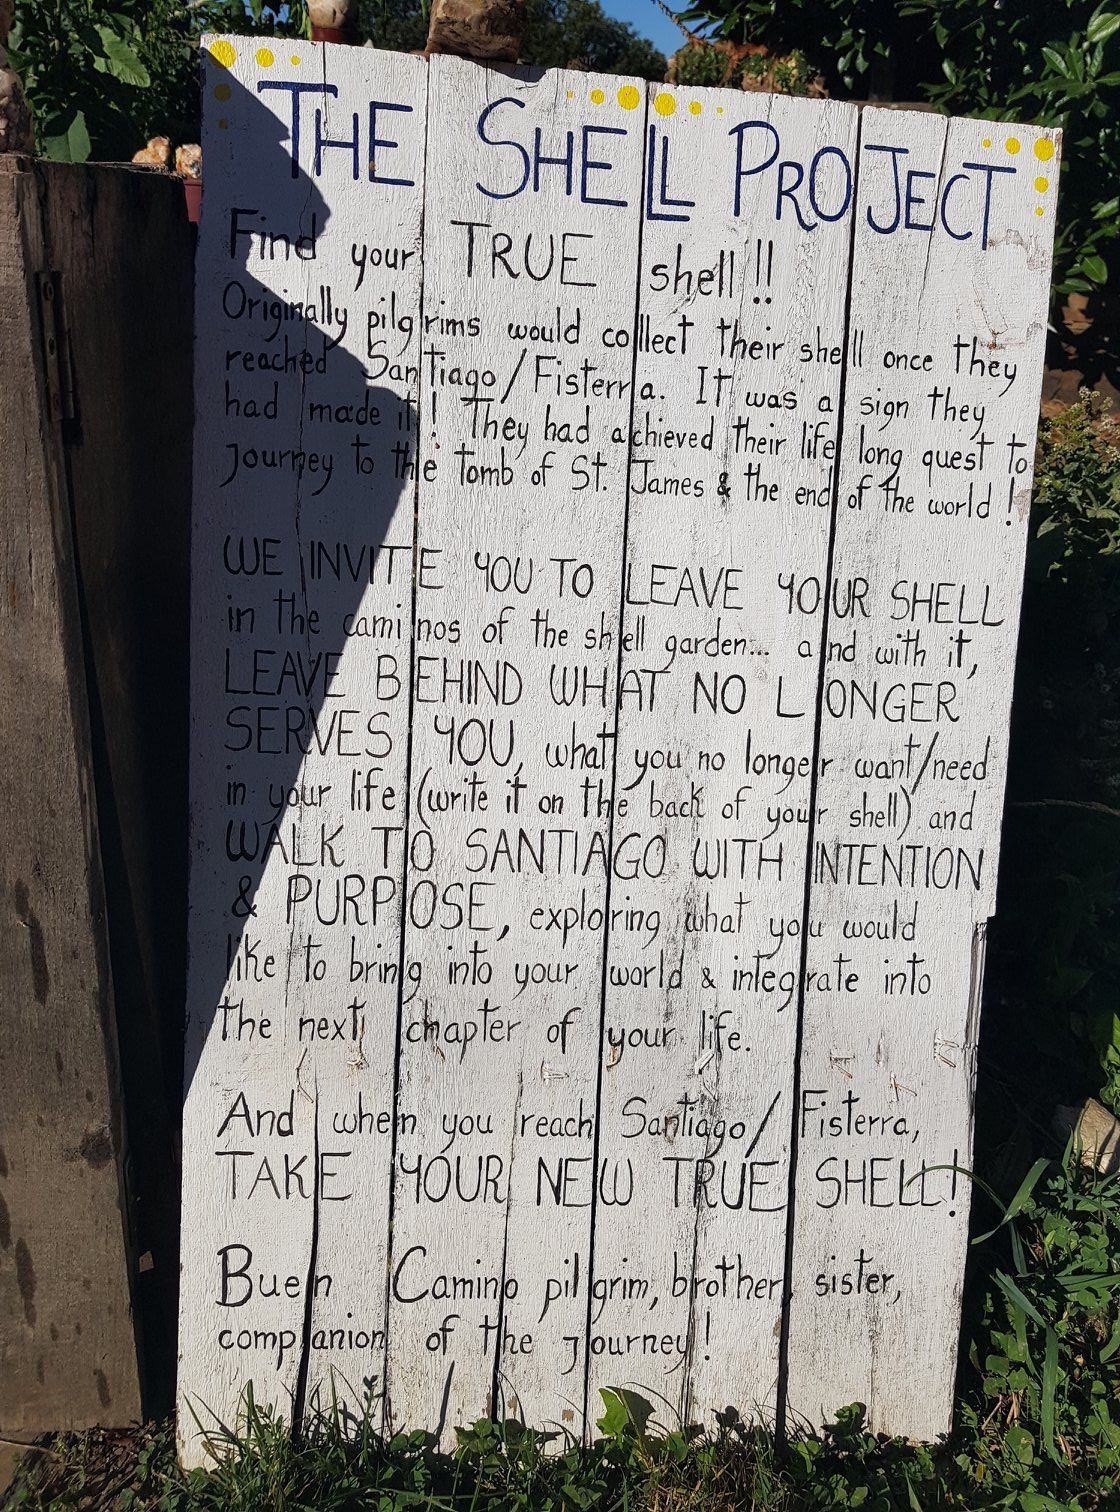 THE SHELL PROJECT
Find your TRUE shell!!
Originally pilgrims would collect their shell once they
reached Santiago/Fisterra. It was a sign they
had made it! They had achieved their life long quest to
journey to the tomb of St. James & the end of the world!
WE INVITE YOU TO LEAVE YOUR SHELL
in the caminos of the shell garden... and with it,
LEAVE BEHIND WHAT NO LONGER
SERVES YOU, what you no longer want/need
in your life (write it on the back of your shell) and
WALK TO SANTIAGO WITH INTENTION
& PURPOSE, exploring what you would
like to bring into your world & integrate into
the next chapter of your life.
And when you reach Santiago/Fisterra,
TAKE YOUR NEW TRUE SHELL!
Buen Camino pilgrim, brother, sister,
companion of the journey!